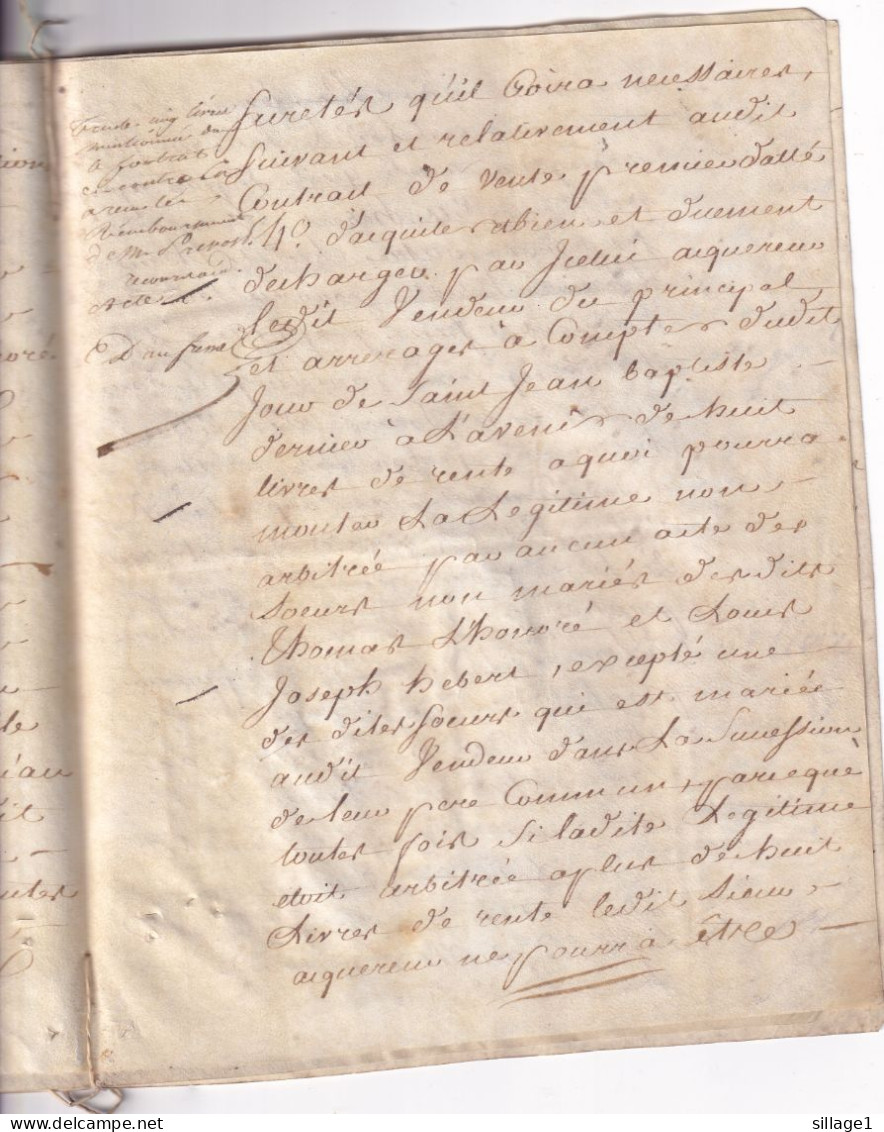 trente cinq livres
mentionnée de
le contrat
remboursement
de Mr
Acte
suretés qu'il Croira necessaires,
suivant et relativement audit
Contrat de vente premier datté
4º. d'aquiter bien et duement
decharger par Icelui aquereur
ledit Vendeur du principal
et arrerages à Compter dudit
Jour de Saint Jean Baptiste
dernier à L'avenir de huit
livres de rente a quoi pourra
monter La Legitime non
arbitrée par aucun acte des
soeurs non mariés desdits
Thomas L'honoré et Louis
Joseph hebert, excepté une
des dites soeurs qui est mariée
audit Vendeur dans La Sucession
de leur pere Commun, parceque
toutes fois si ladite Legitime
etoit arbitrée a plus de huit
Livres de rente ledit Sieur
aquereur ne pourra être
sillage1